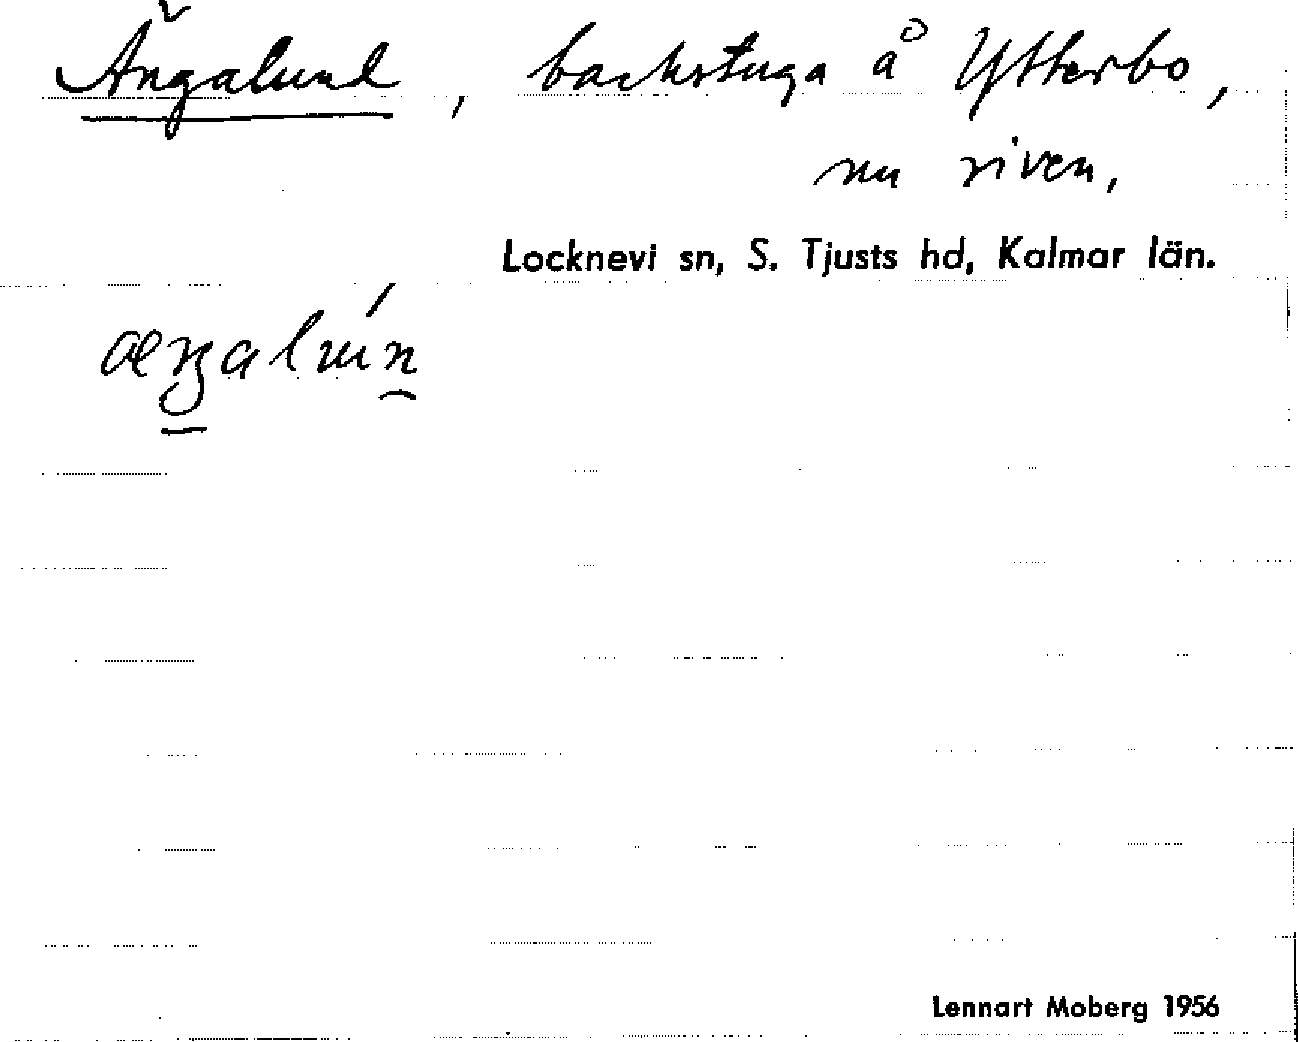 Ängalund, backstuga å Ytterbo,
nu riven,
Locknevi sn, S. Tjusts hd, Kalmar län.
Lennart Moberg 1956